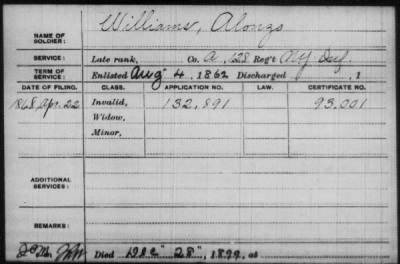 NAME OF SOLDIER: Williams, Alonzo
SERVICE: Late rank, Co. A, 128 Reg't NY Inf.
TERM OF SERVICE: Enlisted Aug 4, 1862 Discharged , 1
DATE OF FILING. CLASS. APPLICATION NO. LAW. CERTIFICATE NO.
1868 Apr. 22 Invalid, 132,891 93,001
Widow,
Minor,
ADDITIONAL SERVICES:
REMARKS:
Died Dec 28, 1899, at